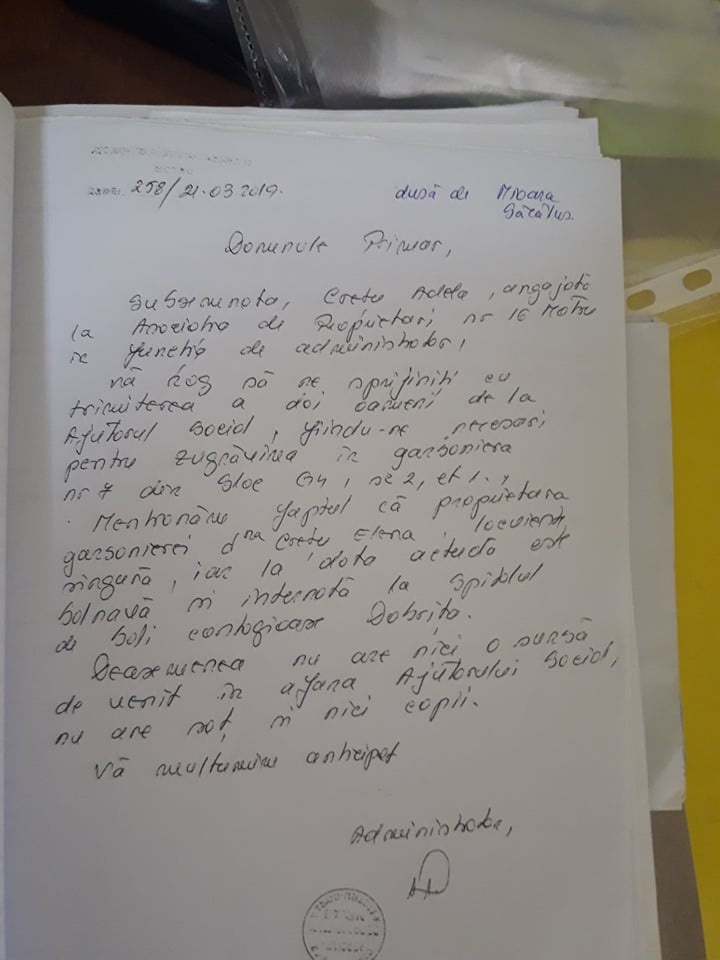 258/21.03.2019.
dusă de Mioara
Domnule Primar,
Subsemnata, Crețu Adela, angajată
la Asociația de Proprietari nr 16 Motru
în funcția de administrator,
vă rog să ne sprijiniți cu
trimiterea a doi oameni de la
Ajutorul Social, fiindu-ne necesari
pentru zugrăvirea în garsoniera
nr 7 din Bloc G4, sc 2, et 1.,
Menționăm faptul că proprietara
garsonierei dna Crețu Elena, locuiește
singură, iar la data actuală este
bolnavă și internată la Spitalul
de boli contagioase Dobrița.
Deasemenea nu are nici o sursă
de venit în afara Ajutorului Social,
nu are soț și nici copii.
Vă mulțumim anticipat
Administrator,